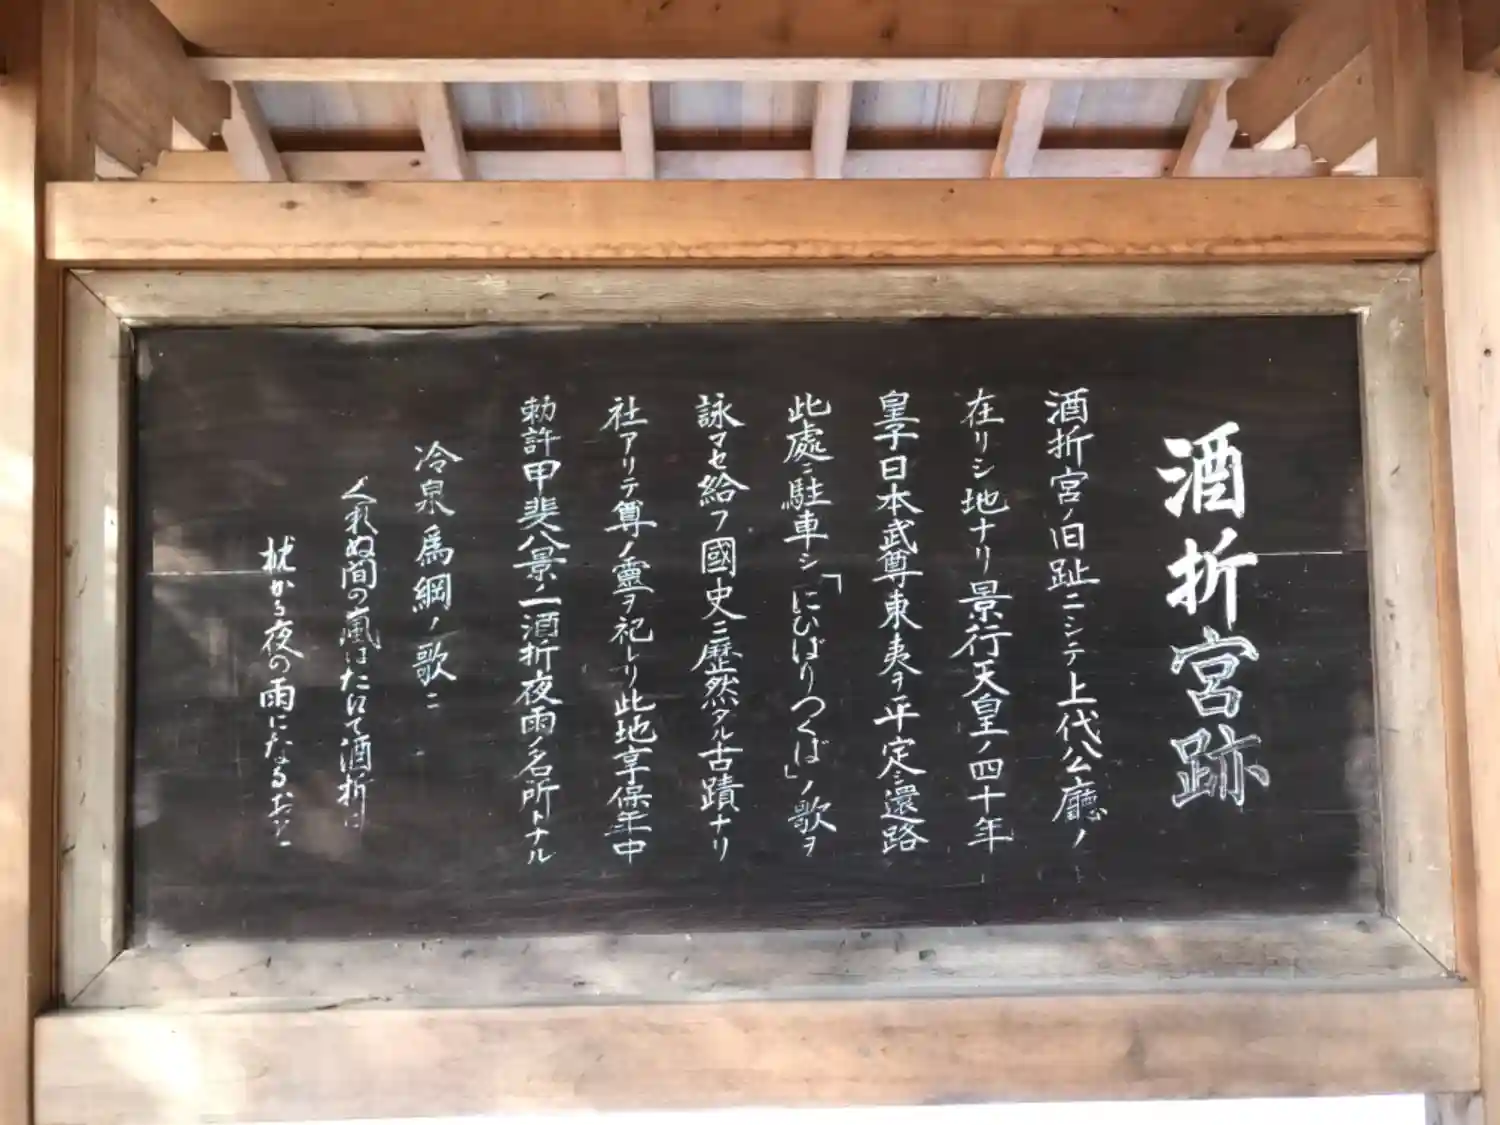 酒折宮跡
酒折宮ノ旧趾ニシテ上代公廳ノ
在リシ地ナリ景行天皇ノ四十年
皇子日本武尊東夷ヲ平定シ還路
此處ニ駐車シ「にひばりつくば」ノ歌ヲ
詠マセ給フ國史ニ歴然タル古蹟ナリ
社アリテ尊ノ靈ヲ祀レリ此地享保年中
勅許甲斐八景ノ一酒折夜雨ノ名所トナル
冷泉爲綱ノ歌ニ
くれぬ間の嵐はたけて酒折は
枕から夜の雨になるおと